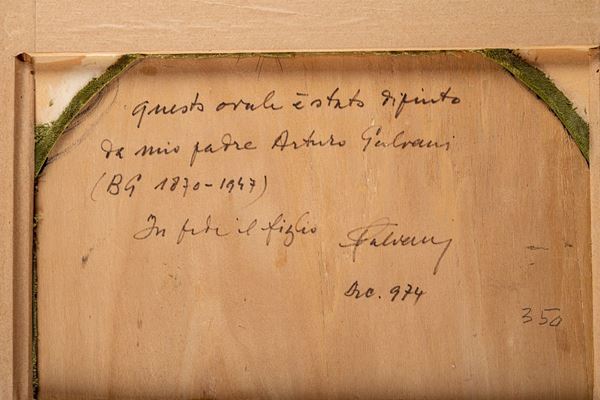 questo ovale è stato dipinto
da mio padre Arturo Galvani
(BG 1870-1947)
In fede il figlio Galvani
Dic. 974
350